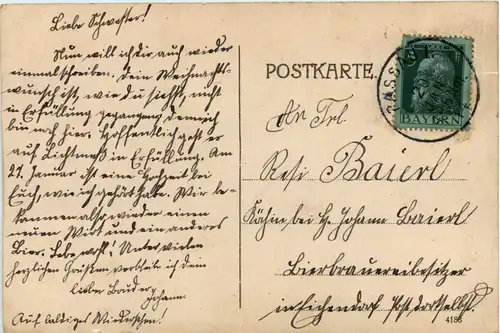 Liebe Schwester!
Nun will ich dir auch wieder
einmal schreiben. Dein Weihnachts-
wunsch ist, wie du siehst, nicht
in Erfüllung gegangen, denn ich
bin noch hier. Hoffentlich geht er
auf Lichtmeß in Erfüllung. Am
21. Januar ist eine Hochzeit bei
Euch, wie ich gehört habe. Wir be-
kommen also wieder einen
neuen Wirt und ein anderes
Bier. Lebe wohl! Unter vielen
herzlichen Grüßen verbleibe ich dein
lieber Bruder
Johann.
Auf baldiges Wiedersehen.
POSTKARTE.
An Frl
Resi Baierl
Köchin bei H. Johann Baierl
Bierbrauereibesitzer
in Eichendorf Post dortselbst.
4186
BAYERN
PASSAU